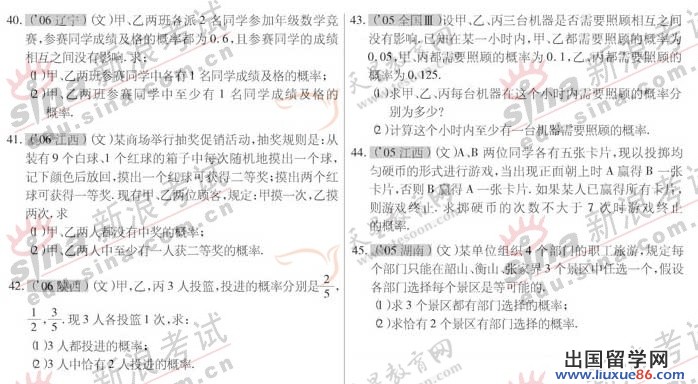 40. ('06 辽宁) (文)甲、乙两班各派 2 名同学参加年级数学竞
赛,参赛同学成绩及格的概率都为 0.6,且参赛同学的成绩
相互之间没有影响.求:
(1)甲、乙两班参赛同学中各有 1 名同学成绩及格的概率;
(2)甲、乙两班参赛同学中至少有 1 名同学成绩及格的
概率.
41. ('06 江西) (文)某商场举行抽奖促销活动,抽奖规则是:从
装有 9 个白球、1 个红球的箱子中每次随机地摸出一个球,
记下颜色后放回,摸出一个红球可获得二等奖;摸出两个红
球可获得一等奖.现有甲、乙两位顾客,规定:甲摸一次,乙摸
两次.求
(1)甲、乙两人都没有中奖的概率;
(2)甲、乙两人中至少有一人获二等奖的概率.
42. ('06 陕西) (文)甲、乙,丙 3 人投篮,投进的概率分别是 2/5,
1/2,3/5.现 3 人各投篮 1 次,求:
(1)3 人都投进的概率;
(2)3 人中恰有 2 人投进的概率.
43. ('05 全国Ⅲ) 设甲、乙、丙三台机器是否需要照顾相互之间
没有影响.已知在某一小时内,甲、乙都需要照顾的概率为
0.05,甲、丙都需要照顾的概率为 0.1,乙、丙都需要照顾的
概率为 0.125.
(1)求甲、乙、丙每台机器在这个小时内需要照顾的概率分
别为多少?
(2)计算这个小时内至少有一台机器需要照顾的概率.
44. ('05 江西) (文)A、B 两位同学各有五张卡片,现以投掷均
匀硬币的形式进行游戏,当出现正面朝上时 A 赢得 B 一张
卡片,否则 B 赢得 A 一张卡片.如果某人已赢得所有卡片,
则游戏终止.求掷硬币的次数不大于 7 次时游戏终止
的概率.
45. ('05 湖南) (文)某单位组织 4 个部门的职工旅游,规定每
个部门只能在韶山、衡山、张家界 3 个景区中任选一个,假设
各部门选择每个景区是等可能的.
(1)求 3 个景区都有部门选择的概率;
(2)求恰有 2 个景区有部门选择的概率.
新浪考试
edu.sina.com.cn
天星教育网
出国留学网
www.liuxue86.com